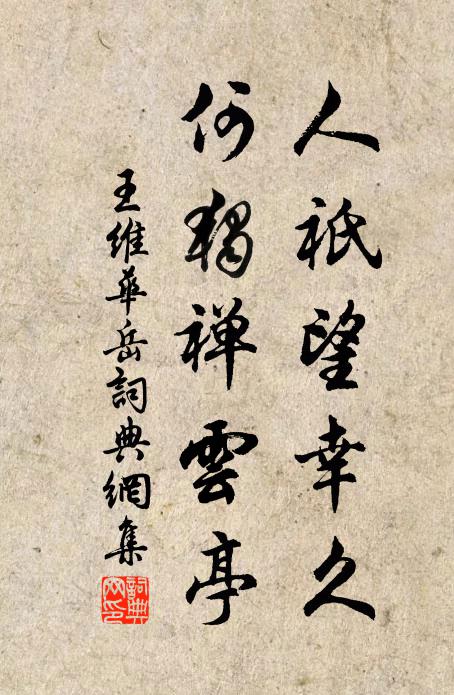 人祇望幸久
何獨禪雲亭
王維華岳詞典網集
詞典
网印